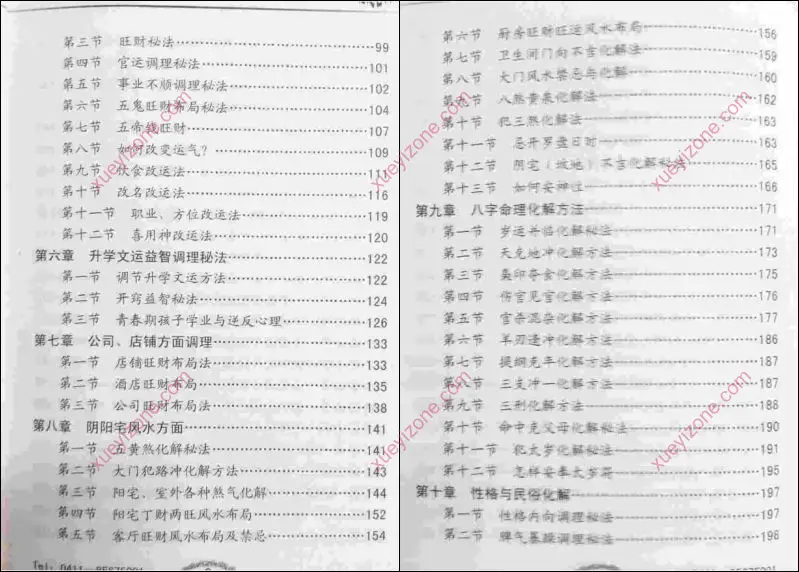 第三节 旺财秘法 99
第四节 官运调理秘法 101
第五节 事业不顺调理秘法 102
第六节 五鬼旺财布局秘法 104
第七节 五帝钱旺财 107
第八节 如何改变运气? 109
第九节 饮食改运法 111
第十节 改名改运法 116
第十一节 职业、方位改运法 119
第十二节 喜用神改运法 120
第六章 升学文运益智调理秘法 122
第一节 调节升学文运方法 122
第二节 开窍益智秘法 124
第三节 青春期孩子学业与逆反心理 126
第七章 公司、店铺方面调理 133
第一节 店铺旺财布局法 133
第二节 酒店旺财布局 135
第三节 公司旺财布局法 138
第八章 阴阳宅风水方面 141
第一节 五黄煞化解秘法 141
第二节 大门犯路冲化解方法 143
第三节 阳宅、室外各种煞气化解 144
第四节 阳宅丁财两旺风水布局 152
第五节 客厅旺财风水布局及禁忌 154
第六节 厨房旺财旺运风水布局 156
第七节 卫生间门向不吉化解法 159
第八节 大门风水禁忌与化解 160
第九节 八煞黄泉化解法 162
第十节 犯三煞化解法 163
第十一节 忌开罗盘日时 163
第十二节 阴宅（坟地）不吉化解秘法 165
第十三节 如何安神位 166
第九章 八字命理化解方法 171
第一节 岁运并临化解秘法 172
第二节 天克地冲化解方法 173
第三节 枭印夺食化解方法 175
第四节 伤官见官化解方法 176
第五节 官杀混杂化解方法 177
第六节 羊刃逢冲化解方法 186
第七节 提纲克年化解方法 187
第八节 三支冲一化解方法 187
第九节 三刑化解方法 188
第十节 命中克父母化解秘法 190
第十一节 犯太岁化解秘法 191
第十二节 怎样安奉太岁符 195
第十章 性格与民俗化解 197
第一节 性格内向调理秘法 197
第二节 脾气暴躁调理秘法 198
xueyizone.com
xueyizone.com
xueyizone.com
xueyizone.com